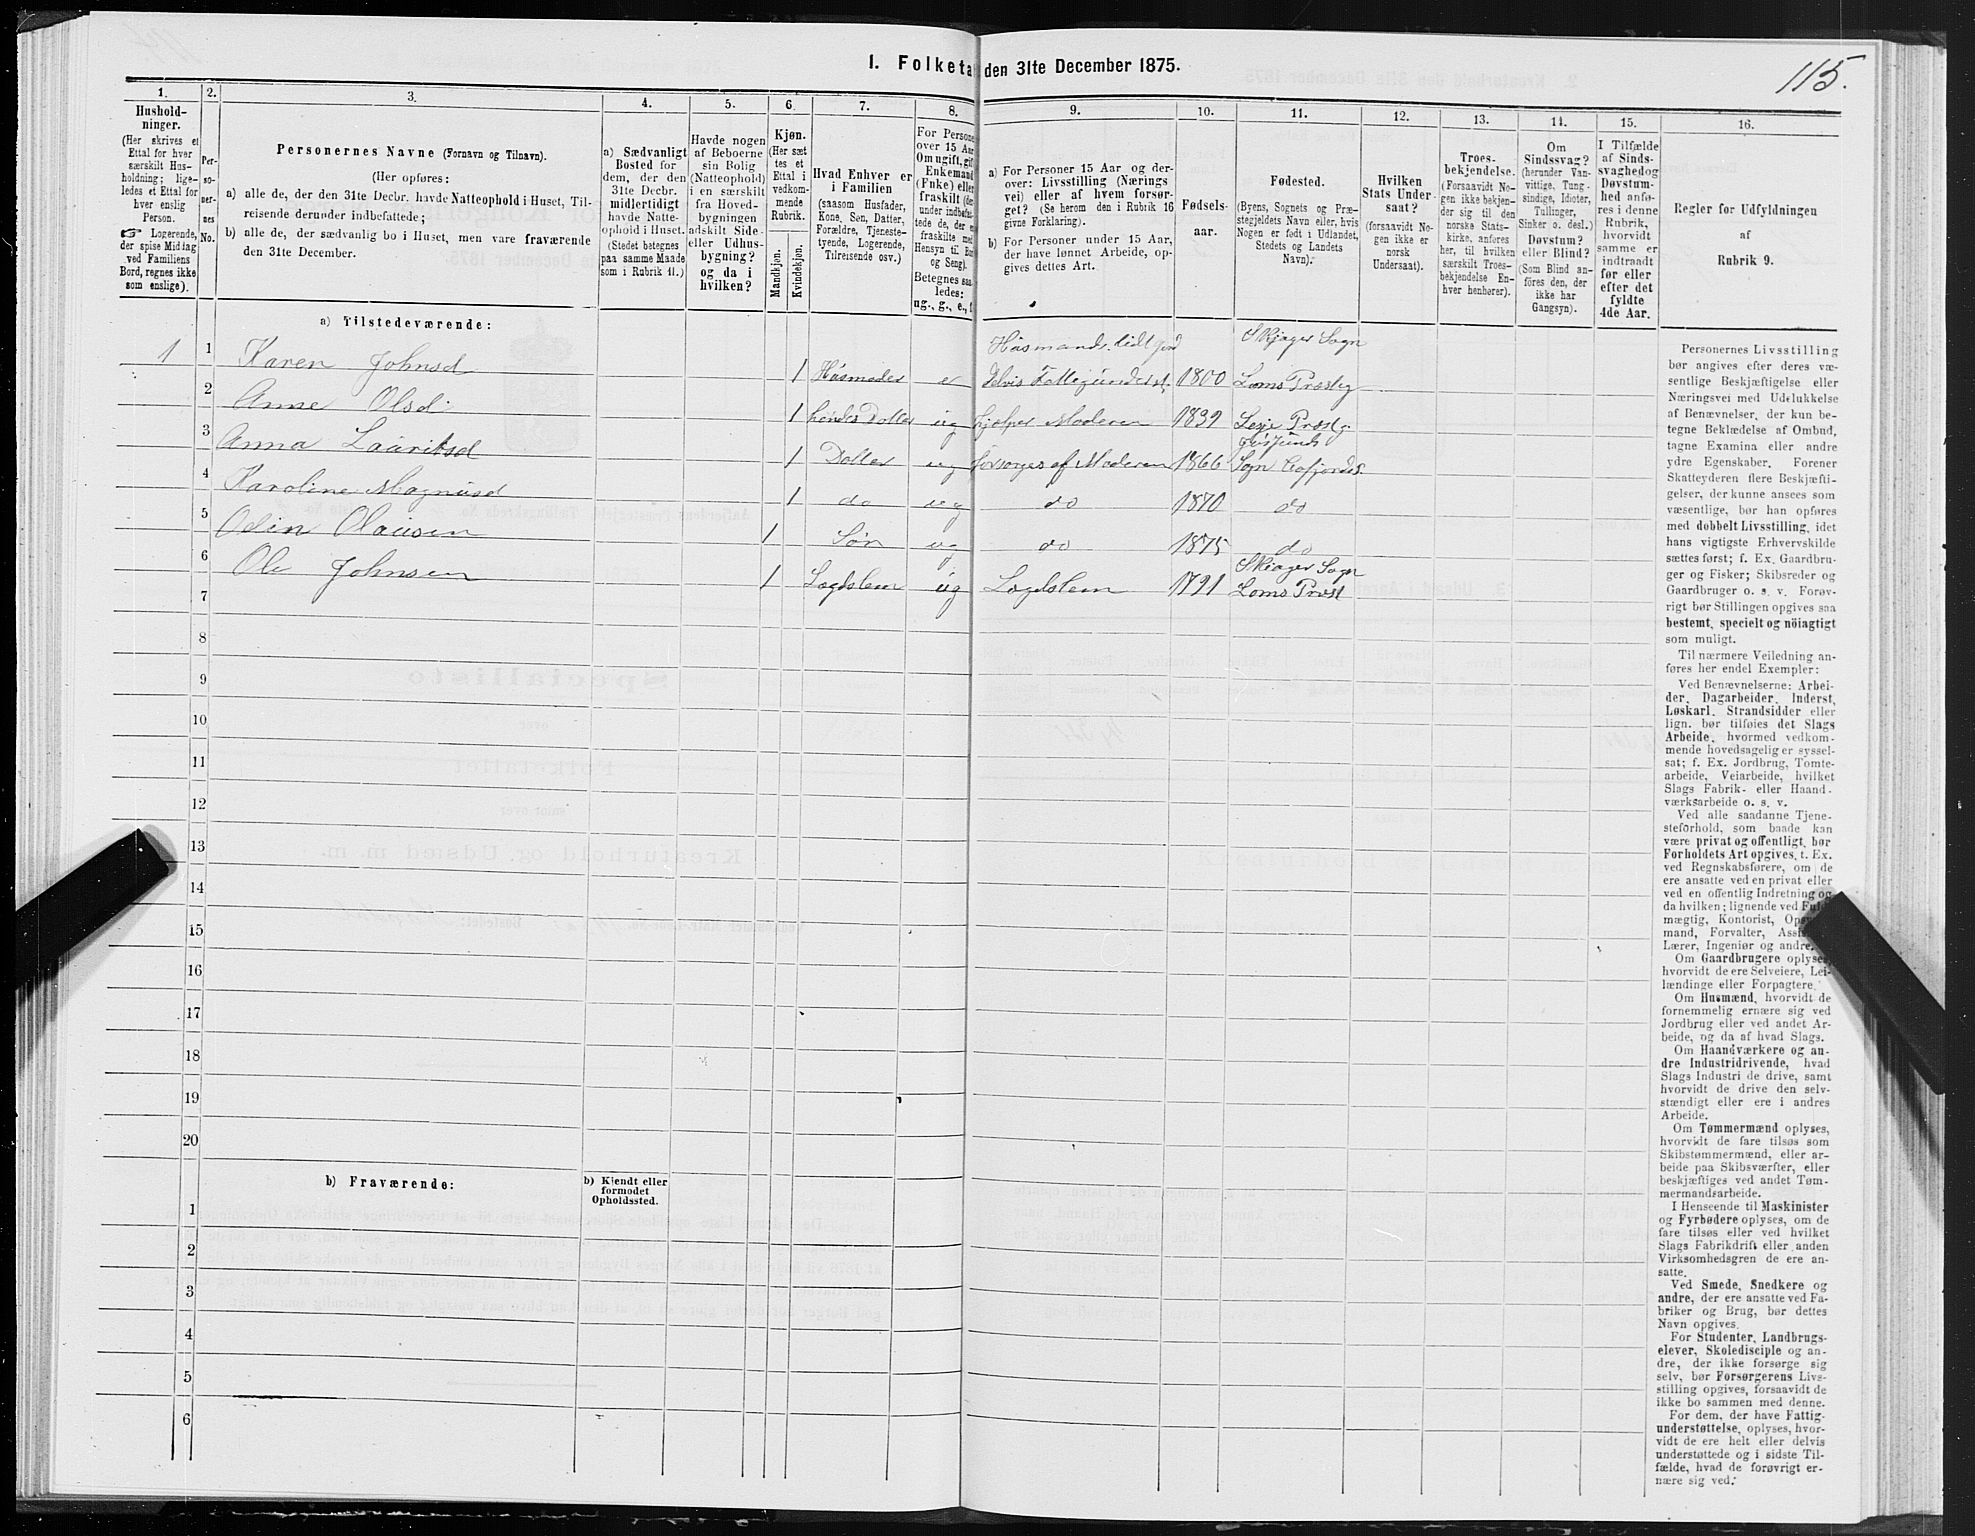 115.
I. Folketa den 31te December 1875.
1.
Hushold-
ninger.
(Her skrives et
Ettal for hver
særskilt Hus-
holdning; lige-
ledes et Ettal for
hver enslig
Person.
☞ Logerende,
der spise Middag
ved Familiens
Bord, regnes ikke
som enslige).
2.
Per-
so-
ner-
nes
No.
3.
Personernes Navne (Fornavn og Tilnavn).
(Her opføres:
a) alle de, der den 31te Decbr. havde Natteophold i Huset, Til-
reisende derunder indbefattede;
b) alle de, der sædvanlig bo i Huset, men vare fraværende
den 31te December.
4.
a) Sædvanligt
Bosted for
dem, der den
31te Decbr.
midlertidigt
havde Natte-
ophold i Huset.
(Stedet betegnes
paa samme Maade
som i Rubrik 11.)
5.
Havde nogen
af Beboerne
sin Bolig
(Natteophold)
i en særskilt
fra Hoved-
bygningen
adskilt Side-
eller Udhus-
bygning?
og da i
hvilken?
6.
Kjøn.
(Her sæt
tes et
Ettal i
vedkom-
mende
Rubrik.
Mandkjøn.
Kvindekjøn.
7.
Hvad Enhver er
i Familien
(saasom Husfader,
Kone, Søn, Datter,
Forældre, Tjeneste-
tyende, Logerende,
Tilreisende osv.)
8.
For Persone
over 15 Aar
Om ugift, gif
Enkemand
(Enke) eller
fraskilt (de
under indbefat-
tede de, der e
fraskilte med
Hensyn til Bor
og Seng).
Betegnes saa
ledes:
ug., g., e., f
9.
a) For Personer 15 Aar og der-
over: Livsstilling (Nærings
vei) eller af hvem forsør-
get? (Se herom den i Rubrik 16
givne Forklaring).
b) For Personer under 15 Aar,
der have lønnet Arbeide, op-
gives dettes Art.
10.
Fødsels-
aar.
11.
Fødested.
(Byens, Sognets og Præ-
stegjeldets Navn eller, hvis
Nogen er født i Udlandet,
Stedets og Landets
Navn).
12.
Hvilken
Stats Under-
saat?
(forsaavidt No-
gen ikke er
norsk
Undersaat).
13.
Troes-
bekjendelse.
(Forsaavidt No-
gen ikke bekjen-
der sig til den
norske Stats-
kirke, anføres
her, til hvilken
særskilt Troes-
bekjendelse En-
hver henhører).
14.
Om
Sindssvag?
(herunder Van-
vittige, Tung-
sindige, Idioter,
Tullinger,
Sinker o. desl.)
Døvstum?
eller Blind?
(Som Blind an-
føres den, der
ikke har
Gangsyn).
15.
I Tilfælde
af Sinds-
svaghedog
Døvstum-
hed anfø-
res i denne
Rubrik,
hvorvidt
samme er
indtraadt
før eller
efter det
fyldte
4de Aar.
16.
Regler for Udfyldningen
af
Rubrik 9.
a) Tilstedeværende:
1 1 Karen Johnsd 1 Husmoder e Husmands. lidt jord Delvis Fattigunderst. 1800 Skjager Sogn Loms Præstg
2 Anne Olsd. 1 hendes Datter ug hjælper Moderen 1839 Lesje Præstg.
3 Anna Lauritsd 1 Datter ug forsørges af Moderen 1866 Sogn Aafjordes.
4 Karoline Magnusd 1 do ug do 1870 do
5 Odin Olausen 1 Søn ug do 1875 do
6 Ole Johnsen 1 Lægdslem ug Lægdslem 1791 Skiager Sogn Loms Præst
7
8
9
10
11
12
13
14
15
16
17
18
19
20
b) Fraværende:
b) Kjendt eller
formodet
Opholdssted.
1
2
3
4
5
6
Personernes Livsstilling
bør angives efter deres væ-
sentlige Beskjæftigelse eller
Næringsvei med Udelukkelse
af Benævnelser, der kun be-
tegne Beklædelse af Ombud,
tagne Examina eller andre
ydre Egenskaber. Forener
Skatteyderen flere Beskjæfti-
gelser, der kunne ansees som
væsentlige, bør han opføres
med dobbelt Livsstilling, idet
hans vigtigste Erhvervskilde
sættes først; f. Ex. Gaardbru-
ger og Fisker; Skibsreder og
Gaardbruger o. s. v. Forøv-
rigt bør Stillingen opgives saa
bestemt, specielt og nöiagtigt
som muligt.
Til nærmere Veiledning an-
føres her endel Exempler:
Ved Benævnelserne: Arbei-
der, Dagarbeider, Inderst,
Løskarl, Strandsidder eller
lign. bør tilføies det Slags
Arbeide, hvormed vedkom-
mende hovedsagelig er syssel-
sat; f. Ex. Jordbrug, Tomte-
arbeide, Veiarbeide, hvilket
Slags Fabrik- eller Haand-
værksarbeide o. s. v.
Ved alle saadanne Tjene-
steforhold, som baade kan
være privat og offentligt, bør
Forholdets Art opgives, t. Ex.
ved Regnskabsførere, om de
ere ansatte ved en privat eller
ved en offentlig Indretning og
da hvilken; lignende ved Fuld-
mægtig, Kontorist, Opsyns-
mand, Forvalter, Assistent,
Lærer, Ingeniør og andre.
Om Gaardbrugere oplyses,
hvorvidt de ere Selveiere, Lei-
lændinge eller Forpagtere.
Om Husmænd, hvorvidt de
fornemmelig ernære sig ved
Jordbrug eller ved andet Ar-
beide, og da af hvad Slags.
Om Haandværkere og an-
dre Industridrivende, hvad
Slags Industri de drive, samt
hvorvidt de drive den selv-
stændigt eller ere i andres
Arbeide.
Om Tømmermænd oplyses,
hvorvidt de fare tilsøs som
Skibstømmermænd, eller ar-
beide paa Skibsværfter, eller
beskjæftiges ved andet Tøm-
mermandsarbeide.
I Henseende til Maskinister
og Fyrbødere oplyses, om de
fare tilsøs eller ved hvilket
Slags Fabrikdrift eller anden
Virksomhedsgren de ere an-
satte.
Ved Smede, Snedkere og
andre, der ere ansatte ved Fa-
briker og Brug, bør dettes
Navn opgives.
For Studenter, Landbrugs-
elever, Skoledisciple og an-
dre, der ikke forsørge sig
selv, bør Forsørgerens Livs-
stilling opgives, forsaavidt de
ikke bo sammen med denne.
For dem, der have Fattig-
understøttelse, oplyses, hvor-
vidt de ere helt eller delvis
understøttede og i sidste Til-
fælde, hvad de forøvrigt er-
nære sig ved.